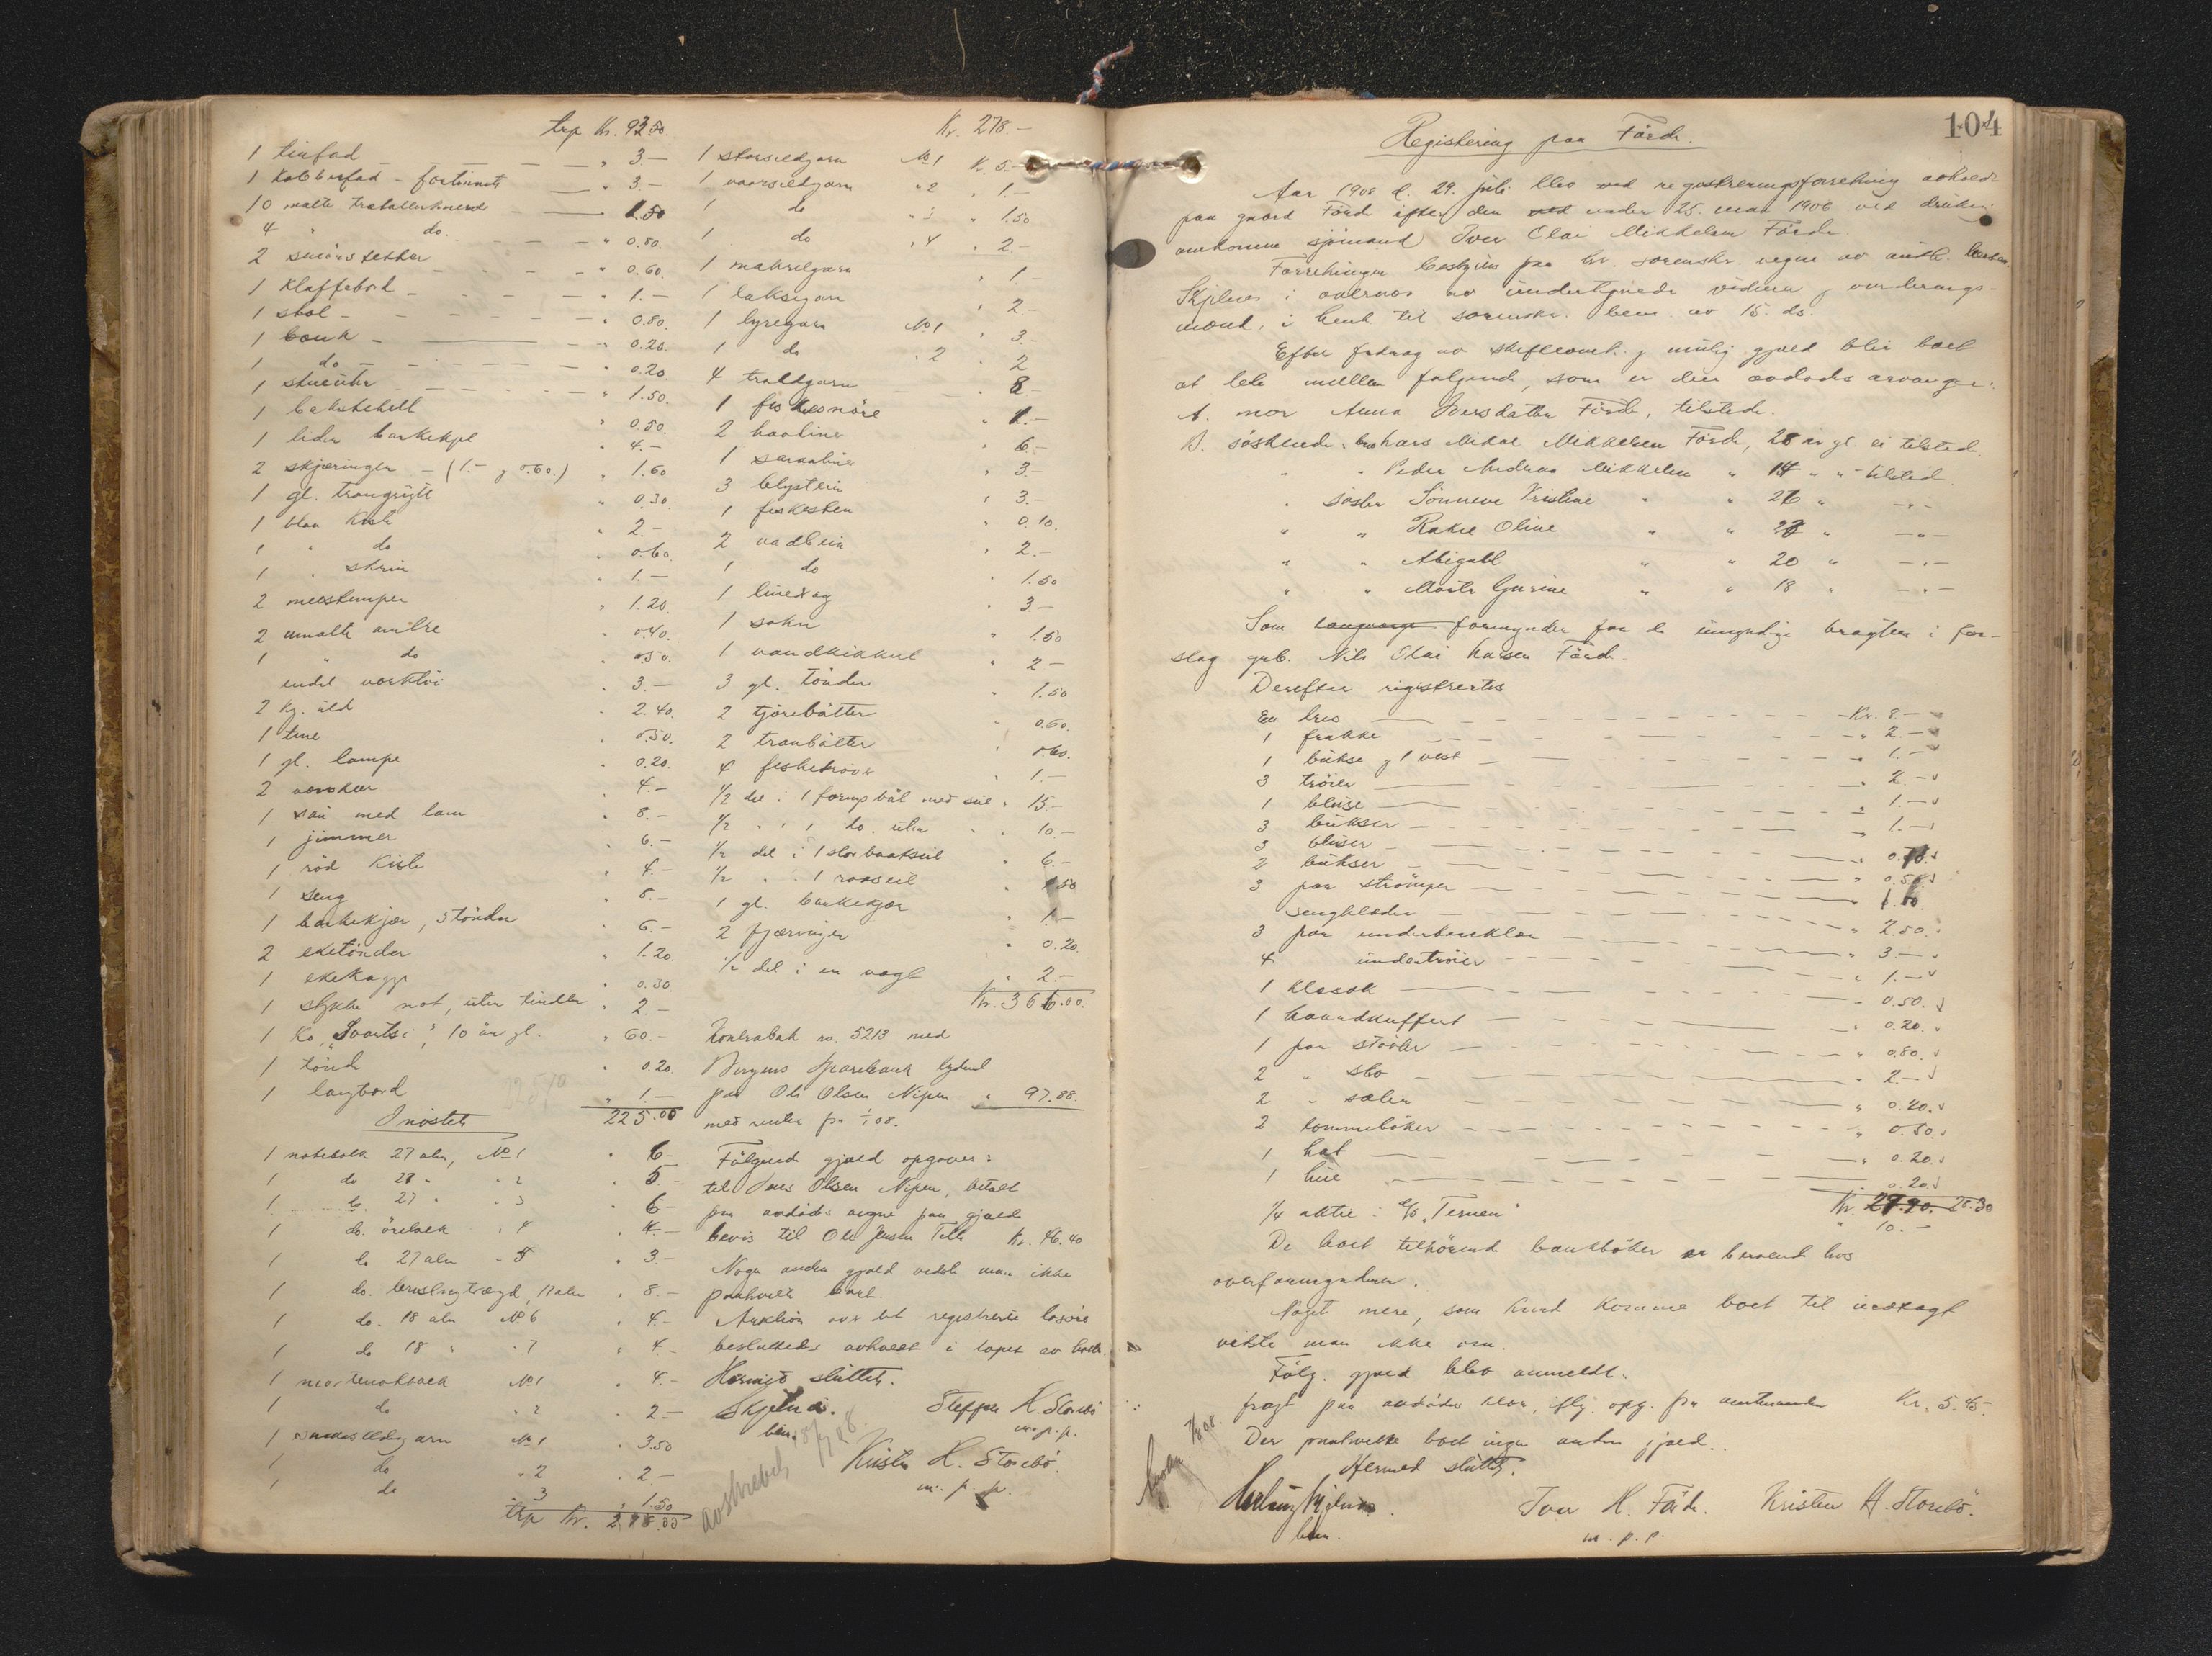 trp Kr. 93.50
1 tinfad " 3.-
1 Kobberfad - fortinnet " 3.-
10 malte trætallerkner 1.50
4 " do. " 0.80.
2 smörstetter " 0.60.
1 Klaffebord " 1.-
1 stol " 0.80.
1 bænk " 0.20.
1 do " 0.20.
1 stueuhr " 1.50.
1 bakstehell " 0.50.
1 liden barkekjel " 4.-
2 skjæringer - (1.- og 0.60.) " 1.60
1 gl. trangryte " 0.30.
1 blaa Kiste " 2.-
1 " do " 0.60
1 " skrin " 1.-
2 meestamper " 1.20.
2 umalte ambre " 0.40.
1 " do " 0.50.
endel værktöi " 3.-
2 kg. uld " 2.40.
1 tine " 0.50.
1 gl. lampe " 0.20.
2 " 4.-
1 sau med lam " 8.-
1 jimmer " 6.-
1 röd Kiste " 4.-
1 seng " 8.-
1 barkekjær, 5 tönder " 6.-
2 eketönder " 1.20
1 ekekagge " 0.30.
1 stykke not, uten tinder " 2.-
1 Ko, "Svartsi", 10 aar gl. " 60.-
1 tönde " 0.20.
1 langbord " 1.-
225.00
I nöstet
1 notebaek 27 alen, No 1 " 6.-
1 do 28 " " 2 " 5.-
1 do. 27 " " 3 " 6-
1 do. örebaek " 4 " 4.-
1 do 27 alen " 5 " 3-
1 do. 17 alen " 8.-
1 do. 18 alen No 6 " 4.-
1 do 18 " " 7 " 4.-
1 No 1 " 4.-
1 do " 2 " 2.-
1 smaasildgarn No 1 " 3.50
1 do " 2 " 2-
1 do " 3 " 1.50
trp Kr. 278.00
Kr. 278.-
1 storsildgarn No 1 Kr. 5.-
1 vaarsildgarn " 2 " 1.-
1 do " 3 " 1.50
1 do " 4 " 2.-
1 makrelgarn " 1-
1 laksegarn " 2.-
1 lyregarn No 1 " 3.-
1 do " 2 " 2
4 troldgarn " 8
1 fiskesnöre " 1.-
2 haaliner " 6.-
1 " 3.-
3 blystein " 3.-
1 fiskesten " 0.10.
2 vadbein " 2.-
1 do " 1.50
1 linedrag " 3.-
1 sokn " 1.50
1 vandkikkert " 2-
3 gl. tönder " 1.50
2 tjörebötter " 0.60.
2 tranbötter " 0.60.
4 " 1.-
1/2 del i 1 færingsbåt med seil " 15.-
1/2 " " 1 do. uten " 10.-
1/2 del i 1 stor baatseil " 6.-
1/2 " " 1 raaseil " 50
1 gl. barkekjær " 1.-
2 fjæringer " 0.20.
1/2 del i en vægt " 2.-
Kr. 366.00.
Kontrabok no. 5213 med
Bergens Sparebank lydende
paa Ole Olsen Nipen " 97.88.
med renter fra 1/1 08.
Fölgende gjæld opgaves:
til Jens Olsen Nipen, betalt
paa avdödes vegne paa gjælds
bevis til Ole Jensen Kr. 46.40
Nogen anden gjæld vidste man ikke
paahvilte boet.
Auktion over det registrerte lösöre
besluttedes avholdt i löpet av hösten.
Hermed sluttet.
Skjelnes Steffen H. Storebö
lm. m. p. p.
Kristen H. Storebö.
m. p. p.
avskrevet 8/7 08
104
Registrering paa Förde.
Aar 1908 d. 29. juli blev ved registreringsforretning avholdt
paa gaard Förde efter den ved under 25. mai 1908 ved drukning
omkomne sjömand Iver Olai Mikkelsen Förde.
Forretningen bestyres paa hr. sorenskr. vegne av lensm.
Skjelnes i overvær av undertegnede vidner og vurderings-
mænd, i henh. til sorenskr. bem. av 15. ds.
Efter fradrag av skifteomk. og mulig gjæld blir boet
at dele mellem fölgende, som er den avdödes arvinger:
A. mor Anna Iversdatter Förde, tilstede.
B. söskende: bror Lars Nikol Mikkelsen Förde, 28 år gl. ei tilsted.
" " Peder Andreas Mikkelsen " 14 " " tilsted
" söster Sönneve Kristine " " 26 " -"-
" " Rakel Oline " " 23 " -"-
" " Abigael " " 20 " -"-
" " Marte Gurine " " 18 " -"-
Som formynder for de umyndige bragtes i for-
slag grb. Nils Olai Larsen Förde.
Derefter registrertes
En dres Kr. 8.-
1 frakke " 2.-
1 bukse og 1 vest " 1.-
3 tröier " 2-
1 bluse " 1.-
3 bukser " 1.-
3 bluser " 0.70.
2 bukser " 0.50
3 par strömper " 1.10.
sengklæder " 2.50.
3 par underbenklær " 3.-
4 undertröier " 1.-
1 klæssæk " 0.50.
1 haandkuffert " 0.20.
1 par stövler " 0.80.
2 " sko " 2.-
2 " sæler " 0.20.
2 lommeböker " 0.30.
1 hat " 0.20.
1 hue " 0.20.
Kr. 27.90. 28.30
1/4 aktie i d/s "Ternen" " 10.-
De boet tilhörende bankböker er beroende hos
overformynderen.
Noget mere, som kunde komme boet til indtægt
vidste man ikke om.
Fölg. gjæld blev anmeldt:
fragt paa avdödes klær, iflg. opg. fra amtmanden Kr. 5.45-
Der paahvilte boet ingen anden gjæld.
Hermed sluttet.
Skjelnes. Iver H. Förde. Kristen H. Storebö.
lm. m. p. p.
7/8 08.